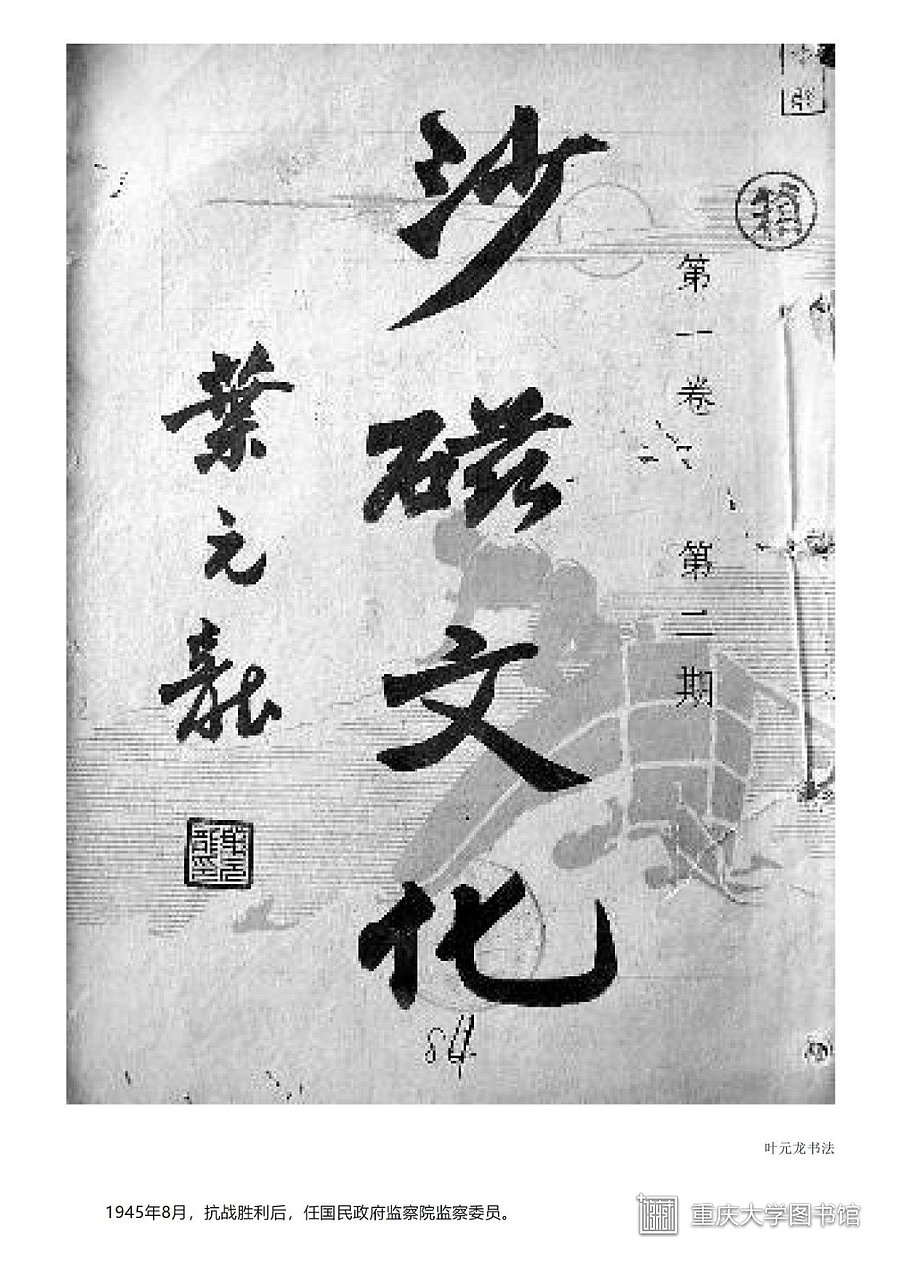 第一卷 第二期
沙磁文化
葉元龍
84
叶元龙书法
1945年8月，抗战胜利后，任国民政府监察院监察委员。
重庆大学图书馆